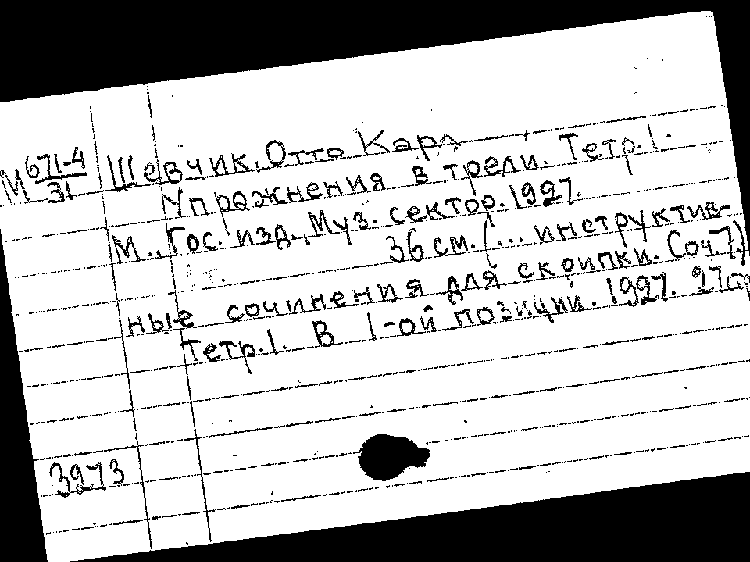 М 671-4/31 Шевчик, Отто Карл
Упражнения в трели. Тетр. 1.
М., Гос. изд., Муз. сектор. 1927.
36 см. (... инструктив-
ные сочинения для скрипки. Соч. 7)
Тетр. 1. В 1-ой позиции. 1927. 27 стр
3973